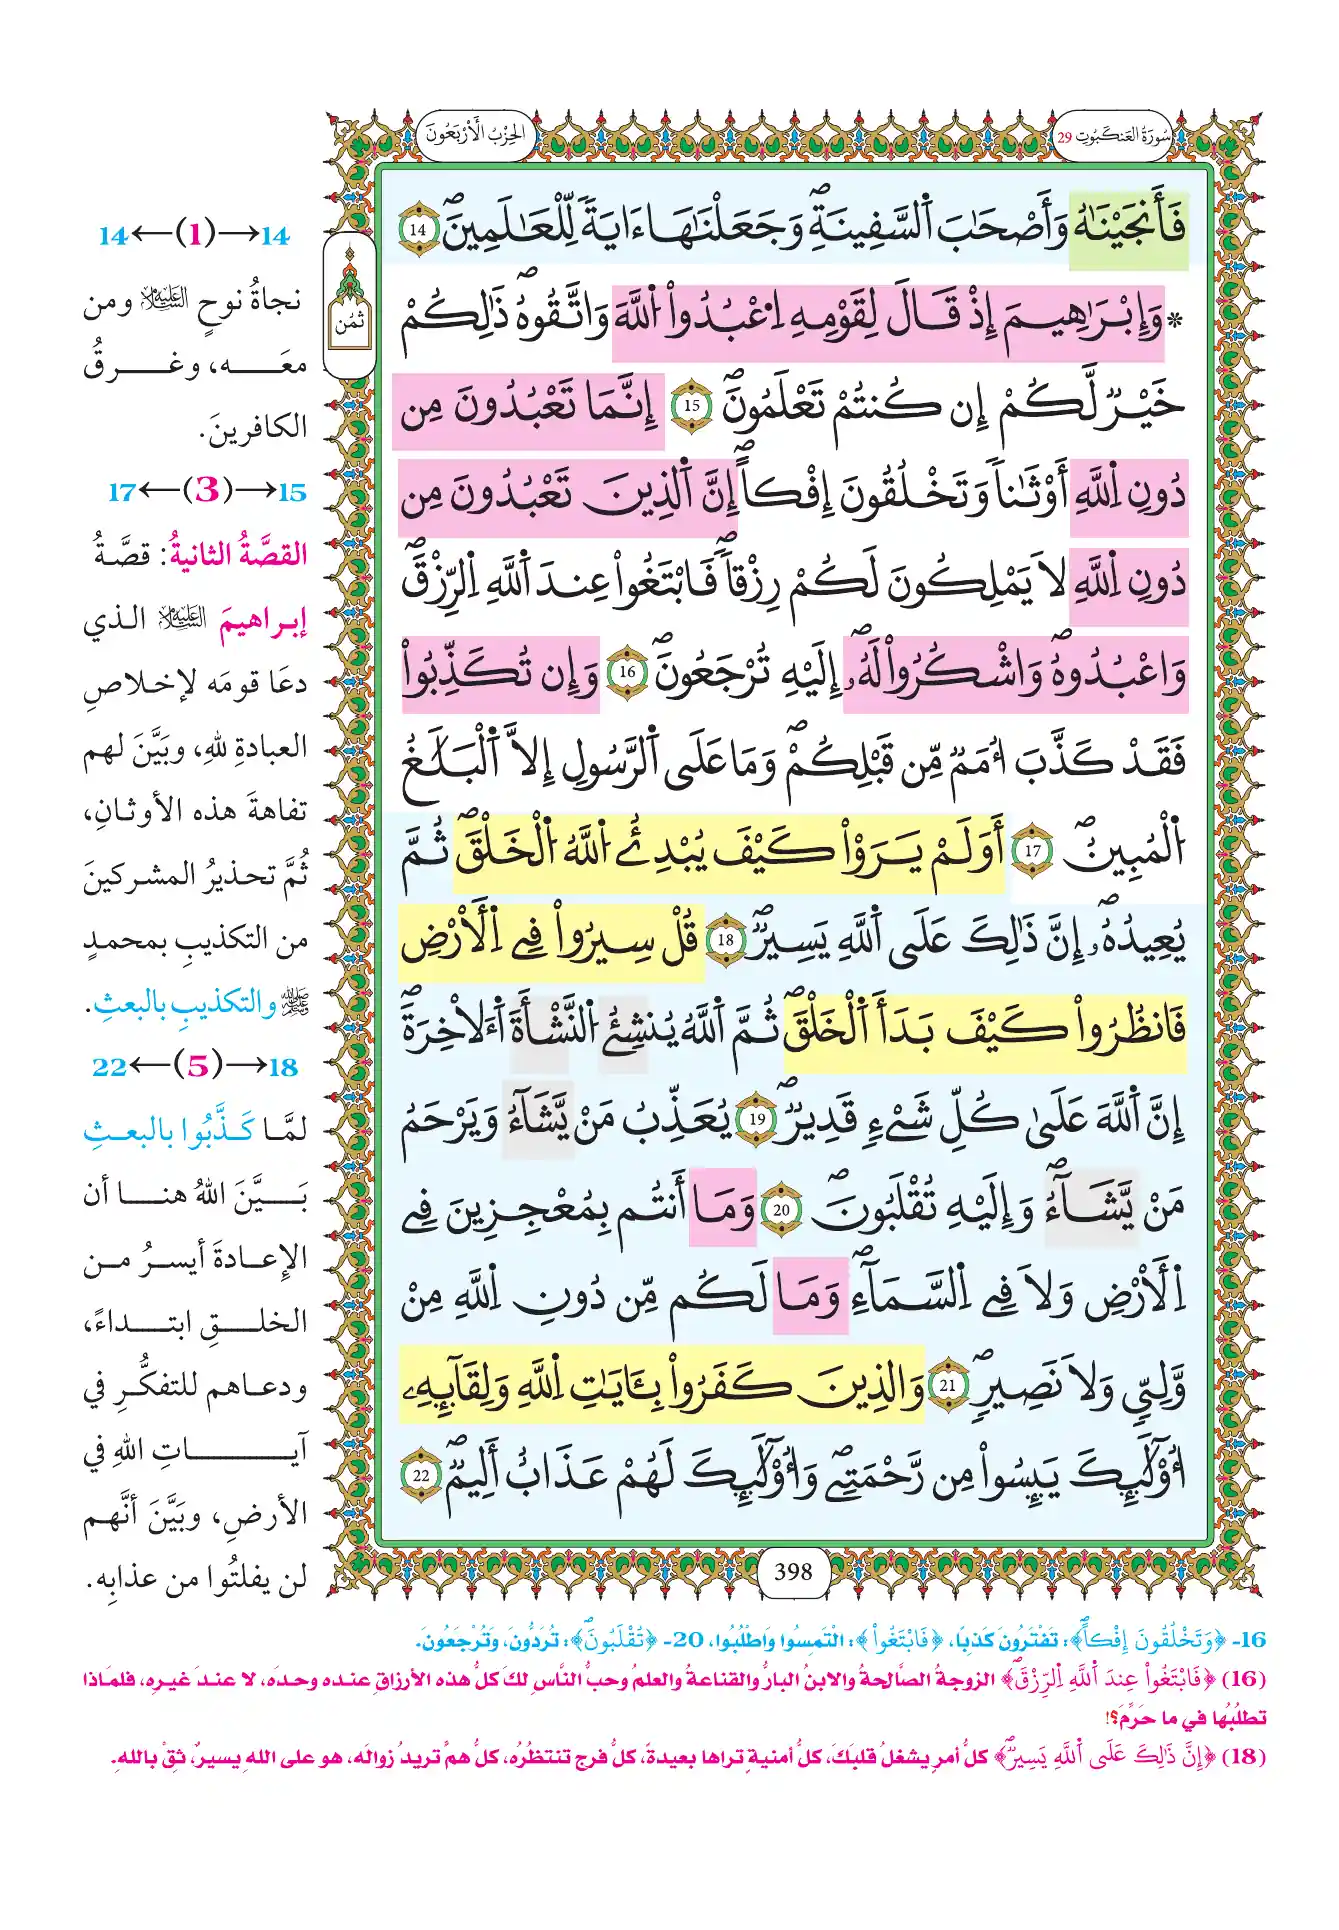 سُورَةُ العَنكَبُوتِ 29
الحِزْبُ الأَرْبَعُونَ
فَأَنجَيْنَٰهُ وَأَصْحَٰبَ اَ۬لسَّفِينَةِۖ وَجَعَلْنَٰهَا ءَايَةٗ لِّلْعَٰلَمِينَۖ 14
* وَإِبْرَٰهِيمَ إِذْ قَالَ لِقَوْمِهِ اِ۟عْبُدُواْ اُ۬للَّهَ وَاتَّقُوهُۖ ذَٰلِكُمْ
خَيْرٞ لَّكُمْ إِن كُنتُمْ تَعْلَمُونَۖ 15 إِنَّمَا تَعْبُدُونَ مِن
دُونِ اِ۬للَّهِ أَوْثَٰناٗ وَتَخْلُقُونَ إِفْكاًۖ إِنَّ اَ۬لذِينَ تَعْبُدُونَ مِن
دُونِ اِ۬للَّهِ لَا يَمْلِكُونَ لَكُمْ رِزْقاٗۖ فَابْتَغُواْ عِندَ اَ۬للَّهِ اِ۬لرِّزْقَۖ
وَاعْبُدُوهُۖ وَاشْكُرُواْ لَهُۥۖ إِلَيْهِ تُرْجَعُونَۖ 16 وَإِن تُكَذِّبُواْ
فَقَدْ كَذَّبَ أُمَمٞ مِّن قَبْلِكُمْۖ وَمَا عَلَى اَ۬لرَّسُولِ إِلَّا اَ۬لْبَلَٰغُ
اُ۬لْمُبِينُۖ 17 أَوَلَمْ يَرَوْاْ كَيْفَ يُبْدِئُ اُ۬للَّهُ اُ۬لْخَلْقَۖ ثُمَّ
يُعِيدُهُۥۖ إِنَّ ذَٰلِكَ عَلَى اَ۬للَّهِ يَسِيرٞۖ 18 قُلْ سِيرُواْ فِے اِ۬لْأَرْضِ
فَانظُرُواْ كَيْفَ بَدَأَ اَ۬لْخَلْقَۖ ثُمَّ اَ۬للَّهُ يُنشِئُ اُ۬لنَّشْأَةَ اَ۬لْأٓخِرَةَۖ
إِنَّ اَ۬للَّهَ عَلَىٰ كُلِّ شَےْءٖ قَدِيرٞۖ 19 يُعَذِّبُ مَنْ يَّشَآءُ وَيَرْحَمُ
مَنْ يَّشَآءُۖ وَإِلَيْهِ تُقْلَبُونَۖ 20 وَمَا أَنتُم بِمُعْجِزِينَ فِے
اِ۬لْأَرْضِ وَلَا فِے اِ۬لسَّمَآءِۖ وَمَا لَكُم مِّن دُونِ اِ۬للَّهِ مِنْ
وَّلِيّٖ وَلَا نَصِيرٖۖ 21 وَالذِينَ كَفَرُواْ بِـَٔايَٰتِ اِ۬للَّهِ وَلِقَآئِهِۦ
أُوْلَٰٓئِكَ يَئِسُواْ مِن رَّحْمَتِےۖ وَأُوْلَٰٓئِكَ لَهُمْ عَذَابٌ أَلِيمٞۖ 22
398
ثُمُن
14←(1)→14
نجاةُ نوحٍ عليه السلام ومن
معَه، وغرقُ
الكافرينَ.
17←(3)→15
القصَّةُ الثانيةُ: قصَّةُ
إبراهيمَ عليه السلام الذي
دعَا قومَه لإخلاصِ
العبادةِ للهِ، وبَيَّنَ لهم
تفاهةَ هذه الأوثانِ،
ثُمَّ تحذيرُ المشركينَ
من التكذيبِ بمحمدٍ
ﷺ والتكذيبِ بالبعثِ.
22←(5)→18
لمَّا كَذَّبُوا بالبعثِ
بَيَّنَ اللهُ هنا أن
الإعادةَ أيسرُ من
الخلقِ ابتداءً،
ودعاهم للتفكُّرِ في
آياتِ اللهِ في
الأرضِ، وبَيَّنَ أنَّهم
لن يفلتُوا من عذابِه.
16- ﴿وَتَخْلُقُونَ إِفْكاًۖ﴾: تَفْتَرُونَ كَذِبًا، ﴿فَابْتَغُواْ﴾: الْتَمِسُوا وَاطْلُبُوا، 20- ﴿تُقْلَبُونَۖ﴾: تُرَدُّونَ، وَتُرْجَعُونَ.
(16) ﴿فَابْتَغُواْ عِندَ اَ۬للَّهِ اِ۬لرِّزْقَۖ﴾ الزوجةُ الصَّالحةُ والابنُ البارُّ والقناعةُ والعلمُ وحبُّ النَّاسِ لكَ كلُّ هذه الأرزاقِ عنده وحدَه، لا عندَ غيرِه، فلماذا
تطلُبُها في ما حَرَّمَ؟!
(18) ﴿إِنَّ ذَٰلِكَ عَلَى اَ۬للَّهِ يَسِيرٞۖ﴾ كلُّ أمرٍ يشغلُ قلبَكَ، كلُّ أمنيةٍ تراها بعيدةً، كلُّ فرجٍ تنتظرُه، كلُّ همٍّ تريدُ زوالَه، هو على اللهِ يسيرٌ، ثقْ باللهِ.